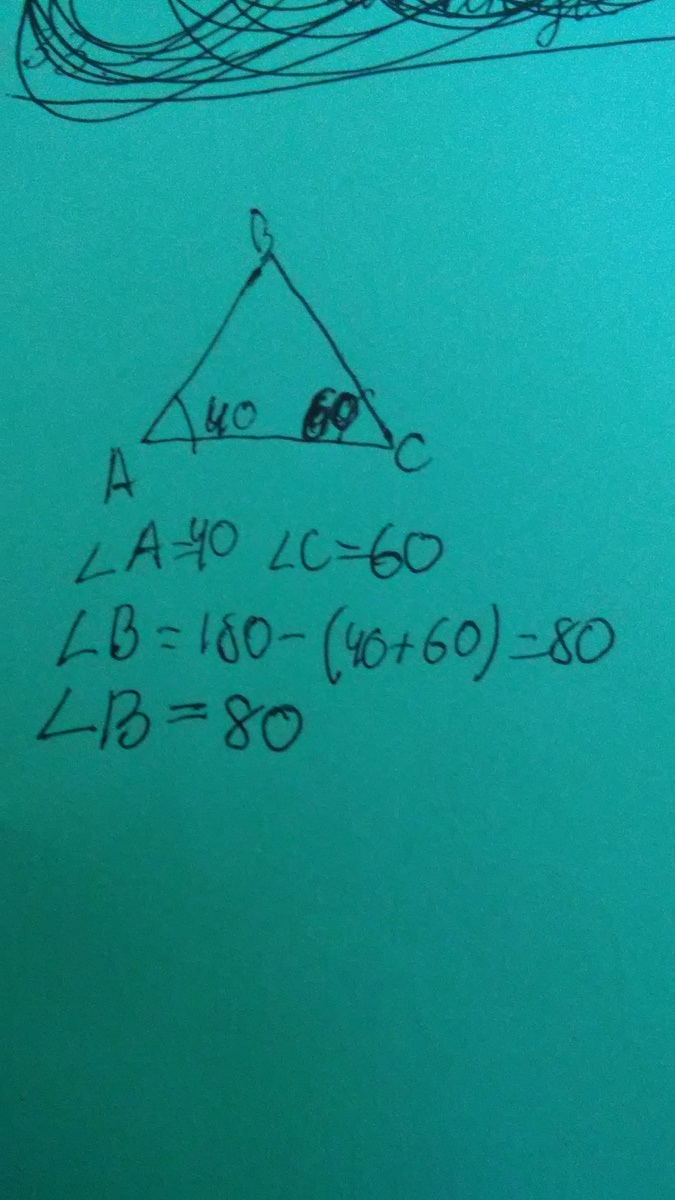 B
40 60°
A C
∠A=40 ∠C=60
∠B=180-(40+60)=80
∠B=80